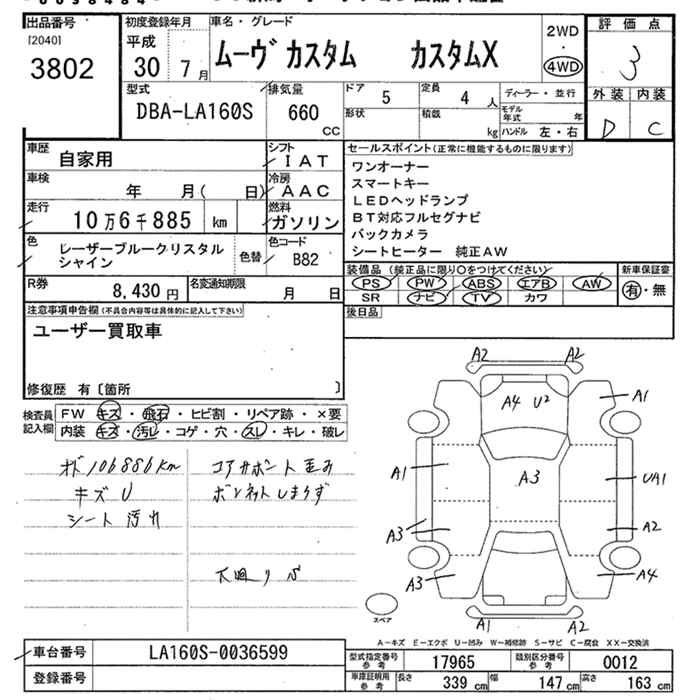 出品番号 初度登録年月 車名・グレード 2WD 評価点
[2040] 平成 ムーヴ カスタム カスタムX ・ 3
3802 30年7月 4WD 外装 内装
D C
型式 排気量 ドア 5 定員 4人 ディーラー・並行
DBA-LA160S 660 CC 形状 積載 kg モデル年式 年
ハンドル 左・右
車歴 自家用 シフト IAT セールスポイント(正常に機能するものに限ります)
車検 年 月( 日) 冷房 AAC ワンオーナー
走行 10万6千885 km 燃料 ガソリン スマートキー
LEDヘッドランプ
BT対応フルセグナビ
バックカメラ
シートヒーター 純正AW
色 レーザーブルークリスタル 色替 色コード
シャイン B82
R券 8,430円 名変通知期限 月 日
装備品(純正品に限り○をつけてください) 新車保証書
PS PW ABS エアB AW 有・無
SR ナビ TV カワ
後日品
注意事項申告欄(不具合内容等は具体的に記入して下さい)
ユーザー買取車
修復歴 有〔箇所 〕
検査員 FW キズ・飛石・ヒビ割・リペア跡・×要
記入欄 内装 キズ・汚レ・コゲ・穴・スレ・キレ・破レ
メド 106886km コアサポート歪み
キズ U ボンネットしまらず
シート 汚れ
下廻りサビ
A2 A2
A4 U2 A1
A1 A3 UA1
A3 A2
A3 A4
スペア A1 A2
A-キズ E-エクボ U-凹み W-補修跡 S-サビ C-腐食 XX-交換済
車台番号 LA160S-0036599
登録番号
型式指定番号 参考 17965 類別区分番号 参考 0012
車庫証明用 参考 長さ 339cm 幅 147cm 高さ 163cm